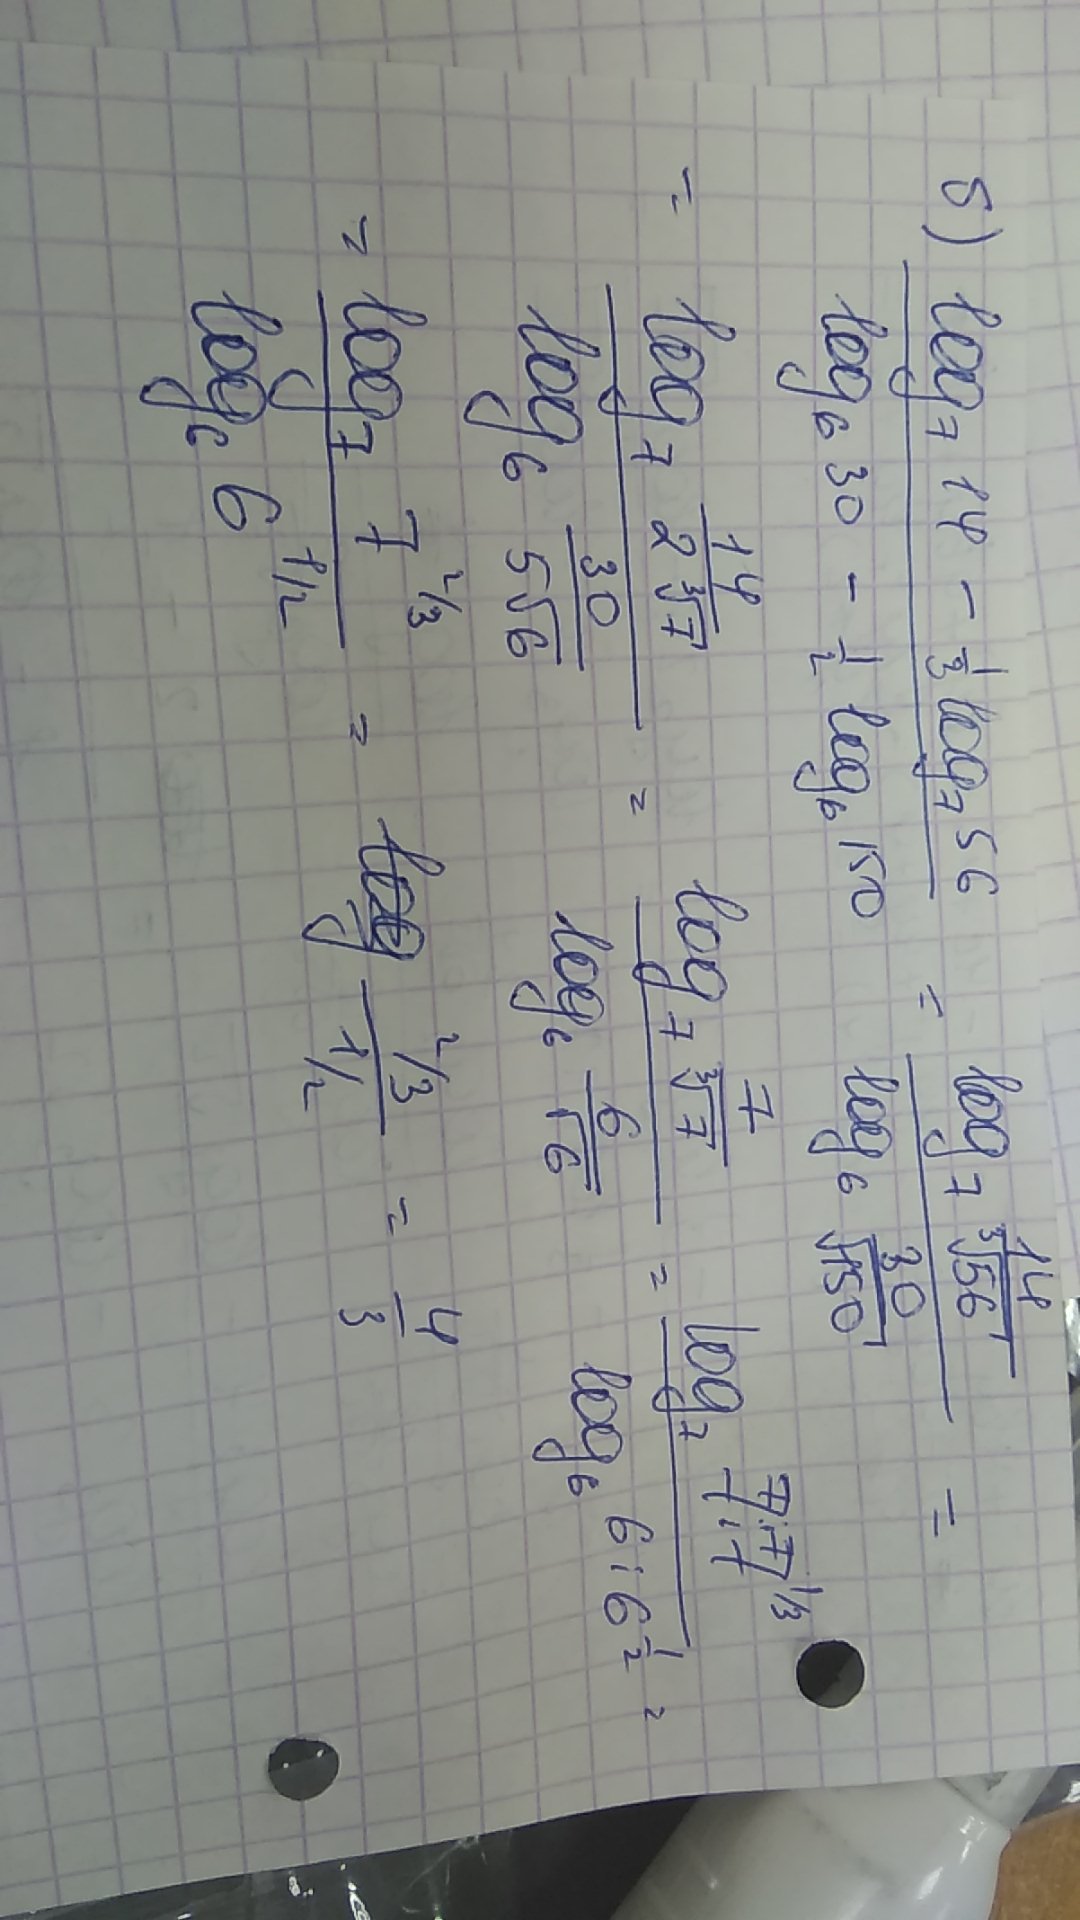 б) (log₇ 14 - 1/3 log₇ 56) / (log₆ 30 - 1/2 log₆ 150) = (log₇ 14/∛56) / (log₆ 30/√150) =
= (log₇ 14/(2∛7)) / (log₆ 30/(5√6)) = (log₇ 7/∛7) / (log₆ 6/√6) = (log₇ 7:7^(1/3)) / (log₆ 6:6^(1/2)) =
= (log₇ 7^(2/3)) / (log₆ 6^(1/2)) = (2/3) / (1/2) = 4/3